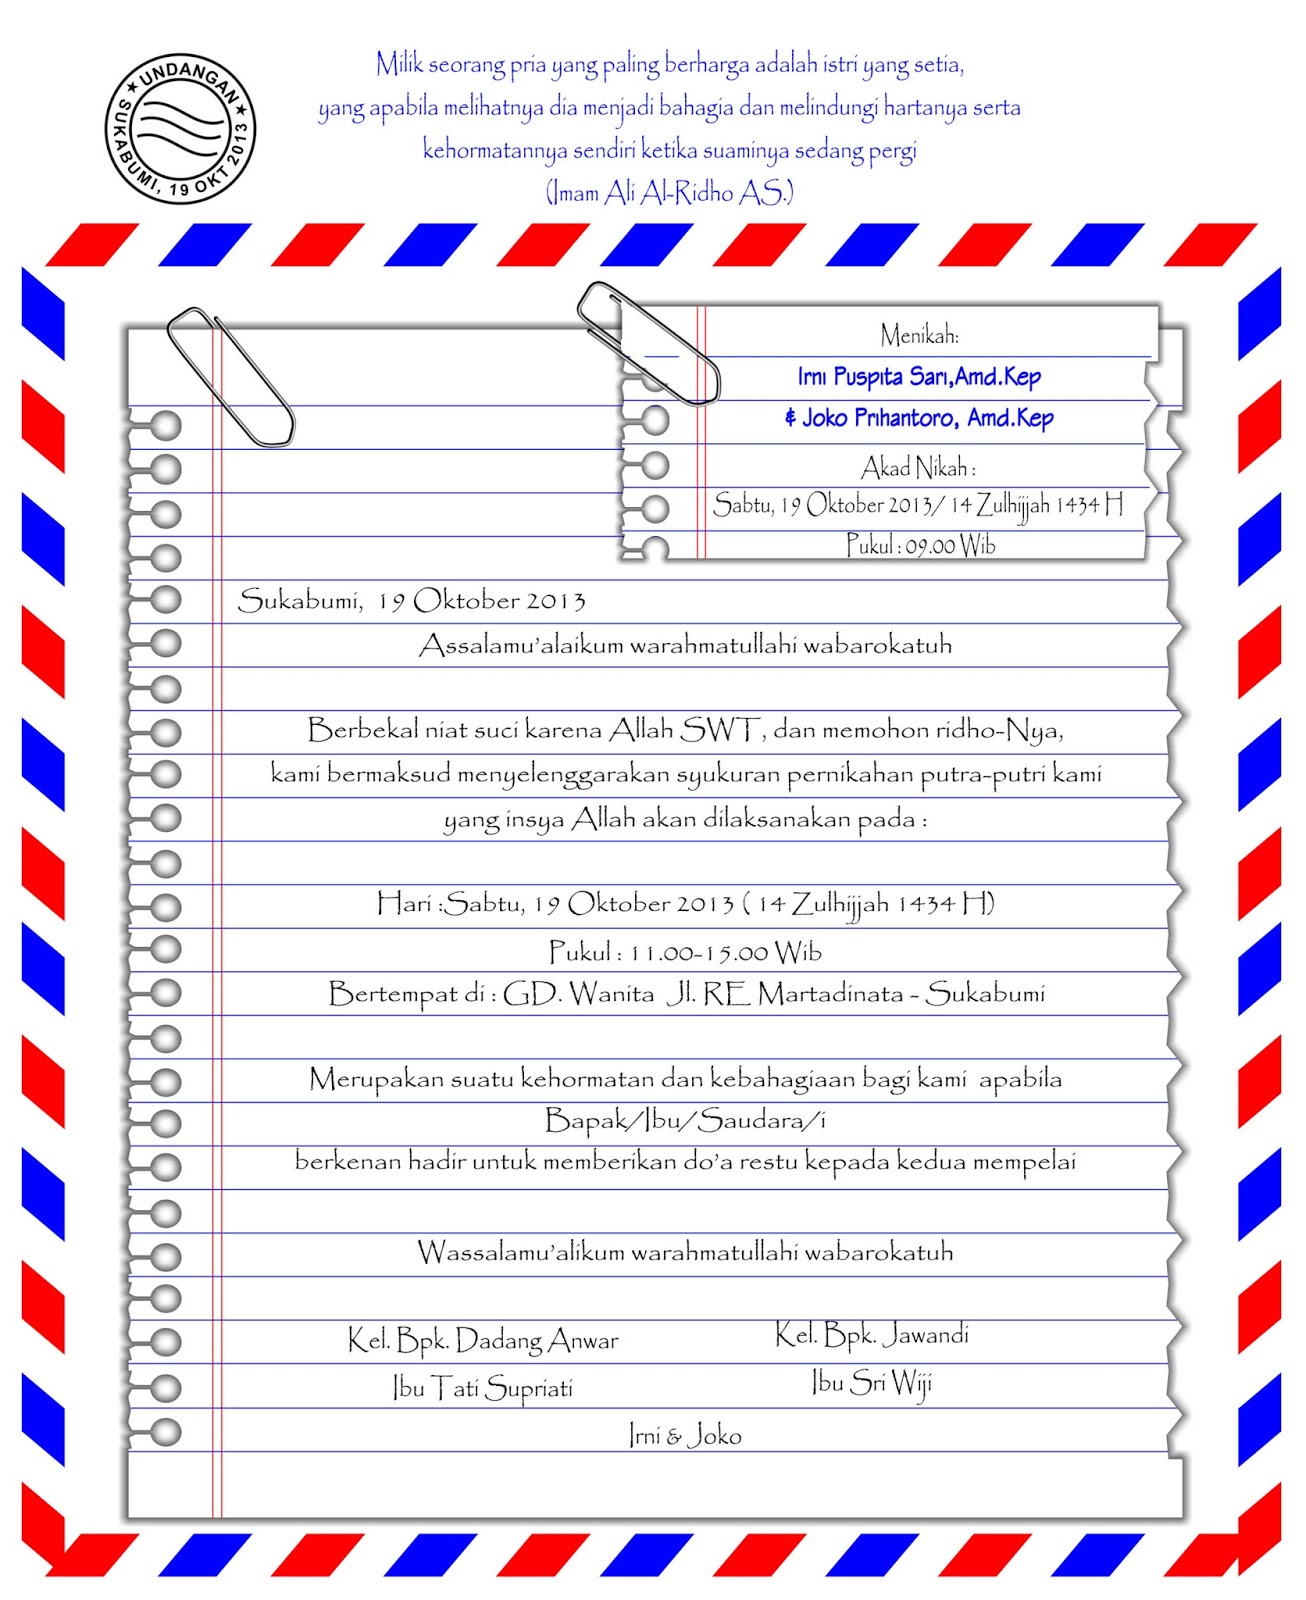 UNDANGAN
SUKABUMI, 19 OKT 2013
Milik seorang pria yang paling berharga adalah istri yang setia,
yang apabila melihatnya dia menjadi bahagia dan melindungi hartanya serta
kehormatannya sendiri ketika suaminya sedang pergi
(Imam Ali Al-Ridho AS.)
Menikah:
Irni Puspita Sari,Amd.Kep
& Joko Prihantoro, Amd.Kep
Akad Nikah :
Sabtu, 19 Oktober 2013/ 14 Zulhijjah 1434 H
Pukul : 09.00 Wib
Sukabumi, 19 Oktober 2013
Assalamu'alaikum warahmatullahi wabarokatuh
Berbekal niat suci karena Allah SWT, dan memohon ridho-Nya,
kami bermaksud menyelenggarakan syukuran pernikahan putra-putri kami
yang insya Allah akan dilaksanakan pada :
Hari :Sabtu, 19 Oktober 2013 ( 14 Zulhijjah 1434 H)
Pukul : 11.00-15.00 Wib
Bertempat di : GD. Wanita Jl. RE Martadinata - Sukabumi
Merupakan suatu kehormatan dan kebahagiaan bagi kami apabila
Bapak/Ibu/Saudara/i
berkenan hadir untuk memberikan do'a restu kepada kedua mempelai
Wassalamu'alikum warahmatullahi wabarokatuh
Kel. Bpk. Dadang Anwar
Ibu Tati Supriati
Kel. Bpk. Jawandi
Ibu Sri Wiji
Irni & Joko